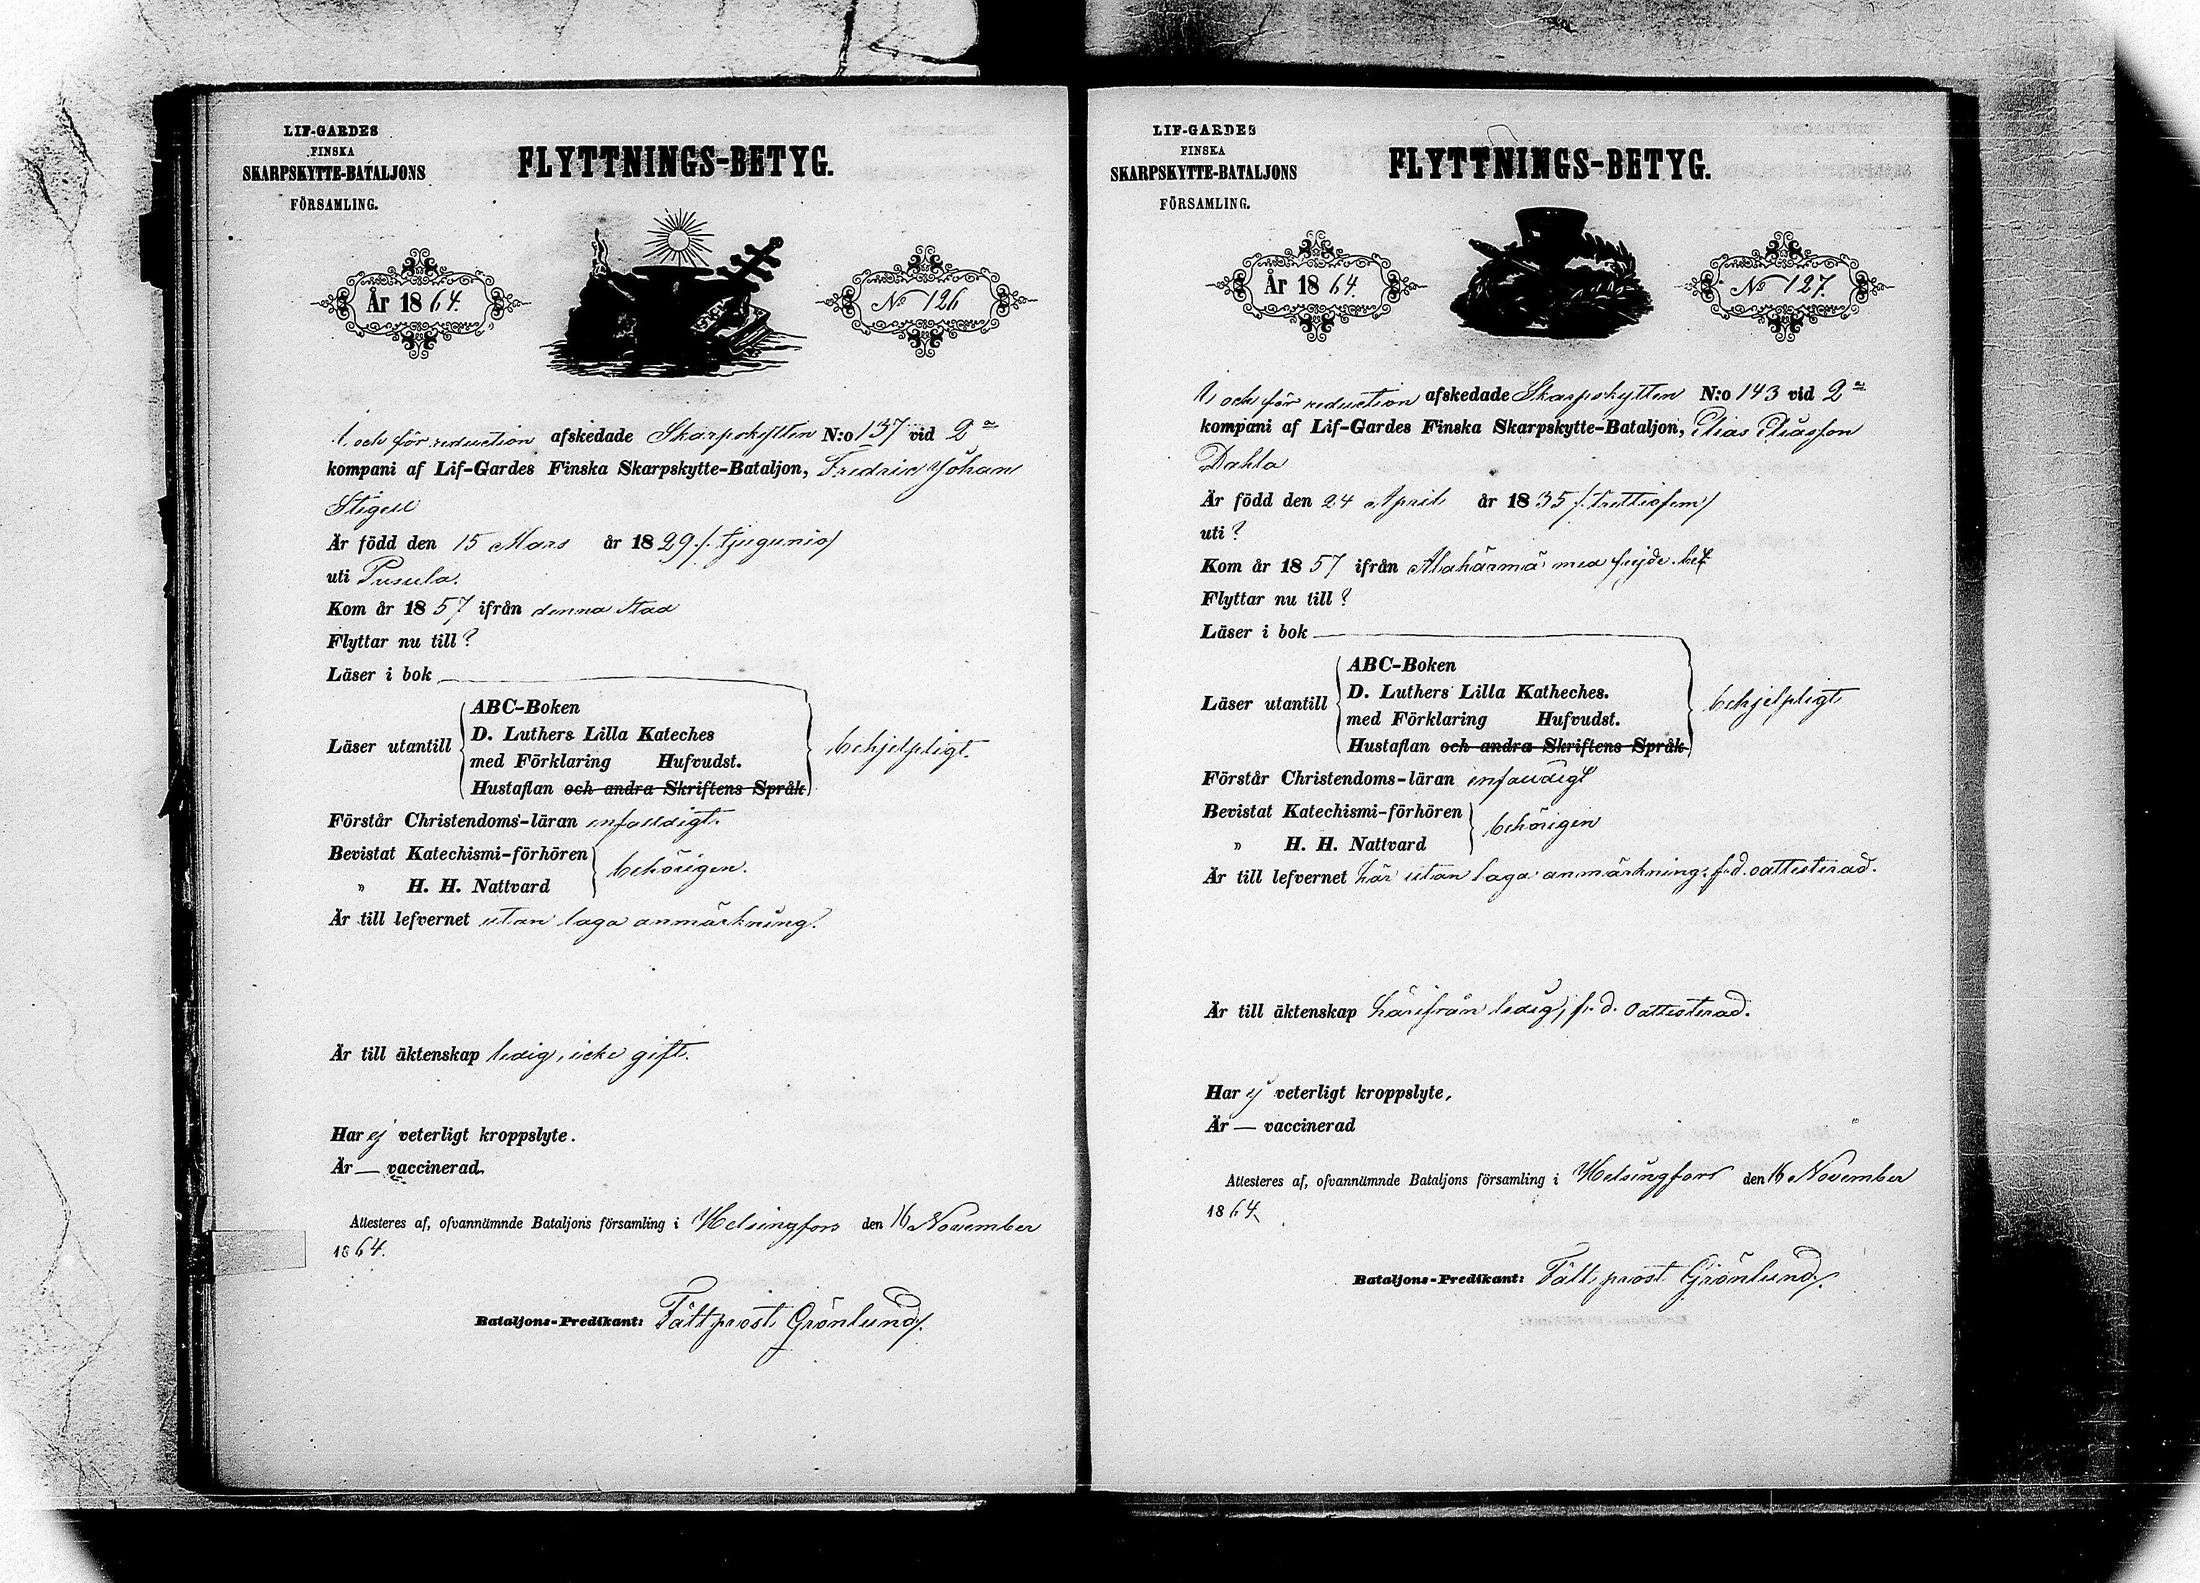 LIF-GARDES
FINSKA
SKARPSKYTTE-BATALJONS
FÖRSAMLING.
FLYTTNINGS-BETYG.
År 1864.
No 126
och för reduction afskedade Skarpskytten N:o 137 vid 2a
kompani af Lif-Gardes Finska Skarpskytte-Bataljon, Fredric Johan
Stigell
Är född den 15 Mars år 1829 /: tjugunio/
uti Pusula.
Kom år 1857 ifrån denna Stad
Flyttar nu till ?
Läser i bok
Läser utantill
ABC-Boken
D. Luthers Lilla Kateches
med Förklaring Hufvudst.
Hustaflan och andra Skriftens Språk
behjelpligt.
Förstår Christendoms-läran enfaldigt.
Bevistat Katechismi-förhören
" H. H. Nattvard
behörigen.
Är till lefvernet utan laga anmärkning.
Är till äktenskap ledig, icke gift.
Har ej veterligt kroppslyte.
Är — vaccinerad.
Attesteres af, ofvannämnde Bataljons församling i Helsingfors den 16 November
1864.
Bataljons-Predikant: Fältprost Grönlund/.
LIF-GARDES
FINSKA
SKARPSKYTTE-BATALJONS
FÖRSAMLING.
FLYTTNINGS-BETYG.
År 1864.
No 127.
och för reduction afskedade Skarpskytten N:o 143 vid 2a
kompani af Lif-Gardes Finska Skarpskytte-Bataljon, Elias Eliasson
Dahla
Är född den 24 April år 1835 /: trettiofem/
uti ?
Kom år 1857 ifrån Alahärmä med frejde bet
Flyttar nu till ?
Läser i bok
Läser utantill
ABC-Boken
D. Luthers Lilla Katheches.
med Förklaring Hufvudst.
Hustaflan och andra Skriftens Språk
behjelpligt
Förstår Christendoms-läran enfaldigt
Bevistat Katechismi-förhören
" H. H. Nattvard
behörigen
Är till lefvernet här utan laga anmärkning; f.d. oattesterad.
Är till äktenskap härifrån ledig; f.d. oattesterad.
Har ej veterligt kroppslyte,
Är — vaccinerad
Attesteres af, ofvannämnde Bataljons församling i Helsingfors den 16 November
1864.
Bataljons-Predikant: Fältprost Grönlund/.